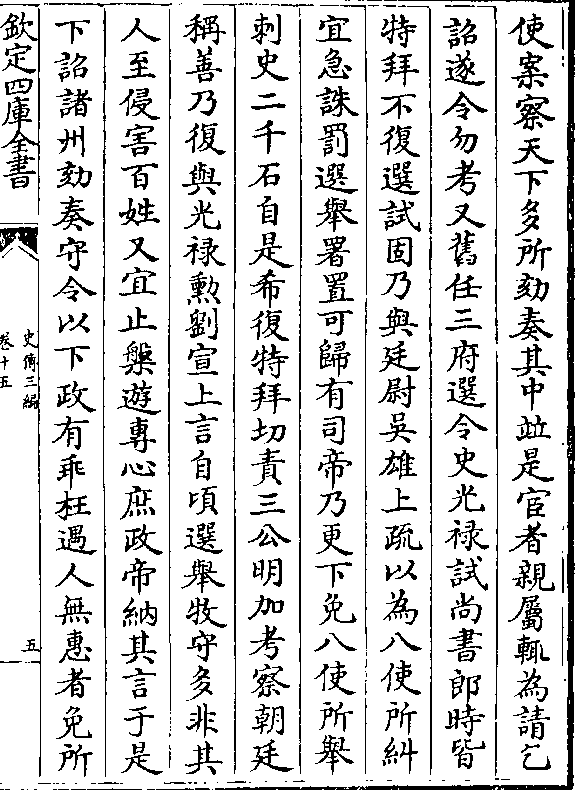 使案察天下多所劾奏其中並是宦者親屬輒為請乞
詔遂令勿考又舊任三府選令史光祿試尚書郎時皆
特拜不復選試固乃與廷尉吳雄上疏以為八使所糾
宜急誅罰選舉署置可歸有司帝乃更下免八使所舉
刺史二千石自是希復特拜切責三公明加考察朝廷
稱善乃復與光祿勲劉宣上言自頃選舉牧守多非其
人至侵害百姓又宜止槃遊專心庶政帝納其言于是
下詔諸州劾奏守令以下政有乖枉遇人無惠者免所
欽定四庫全書
史傳三編
卷十五
五